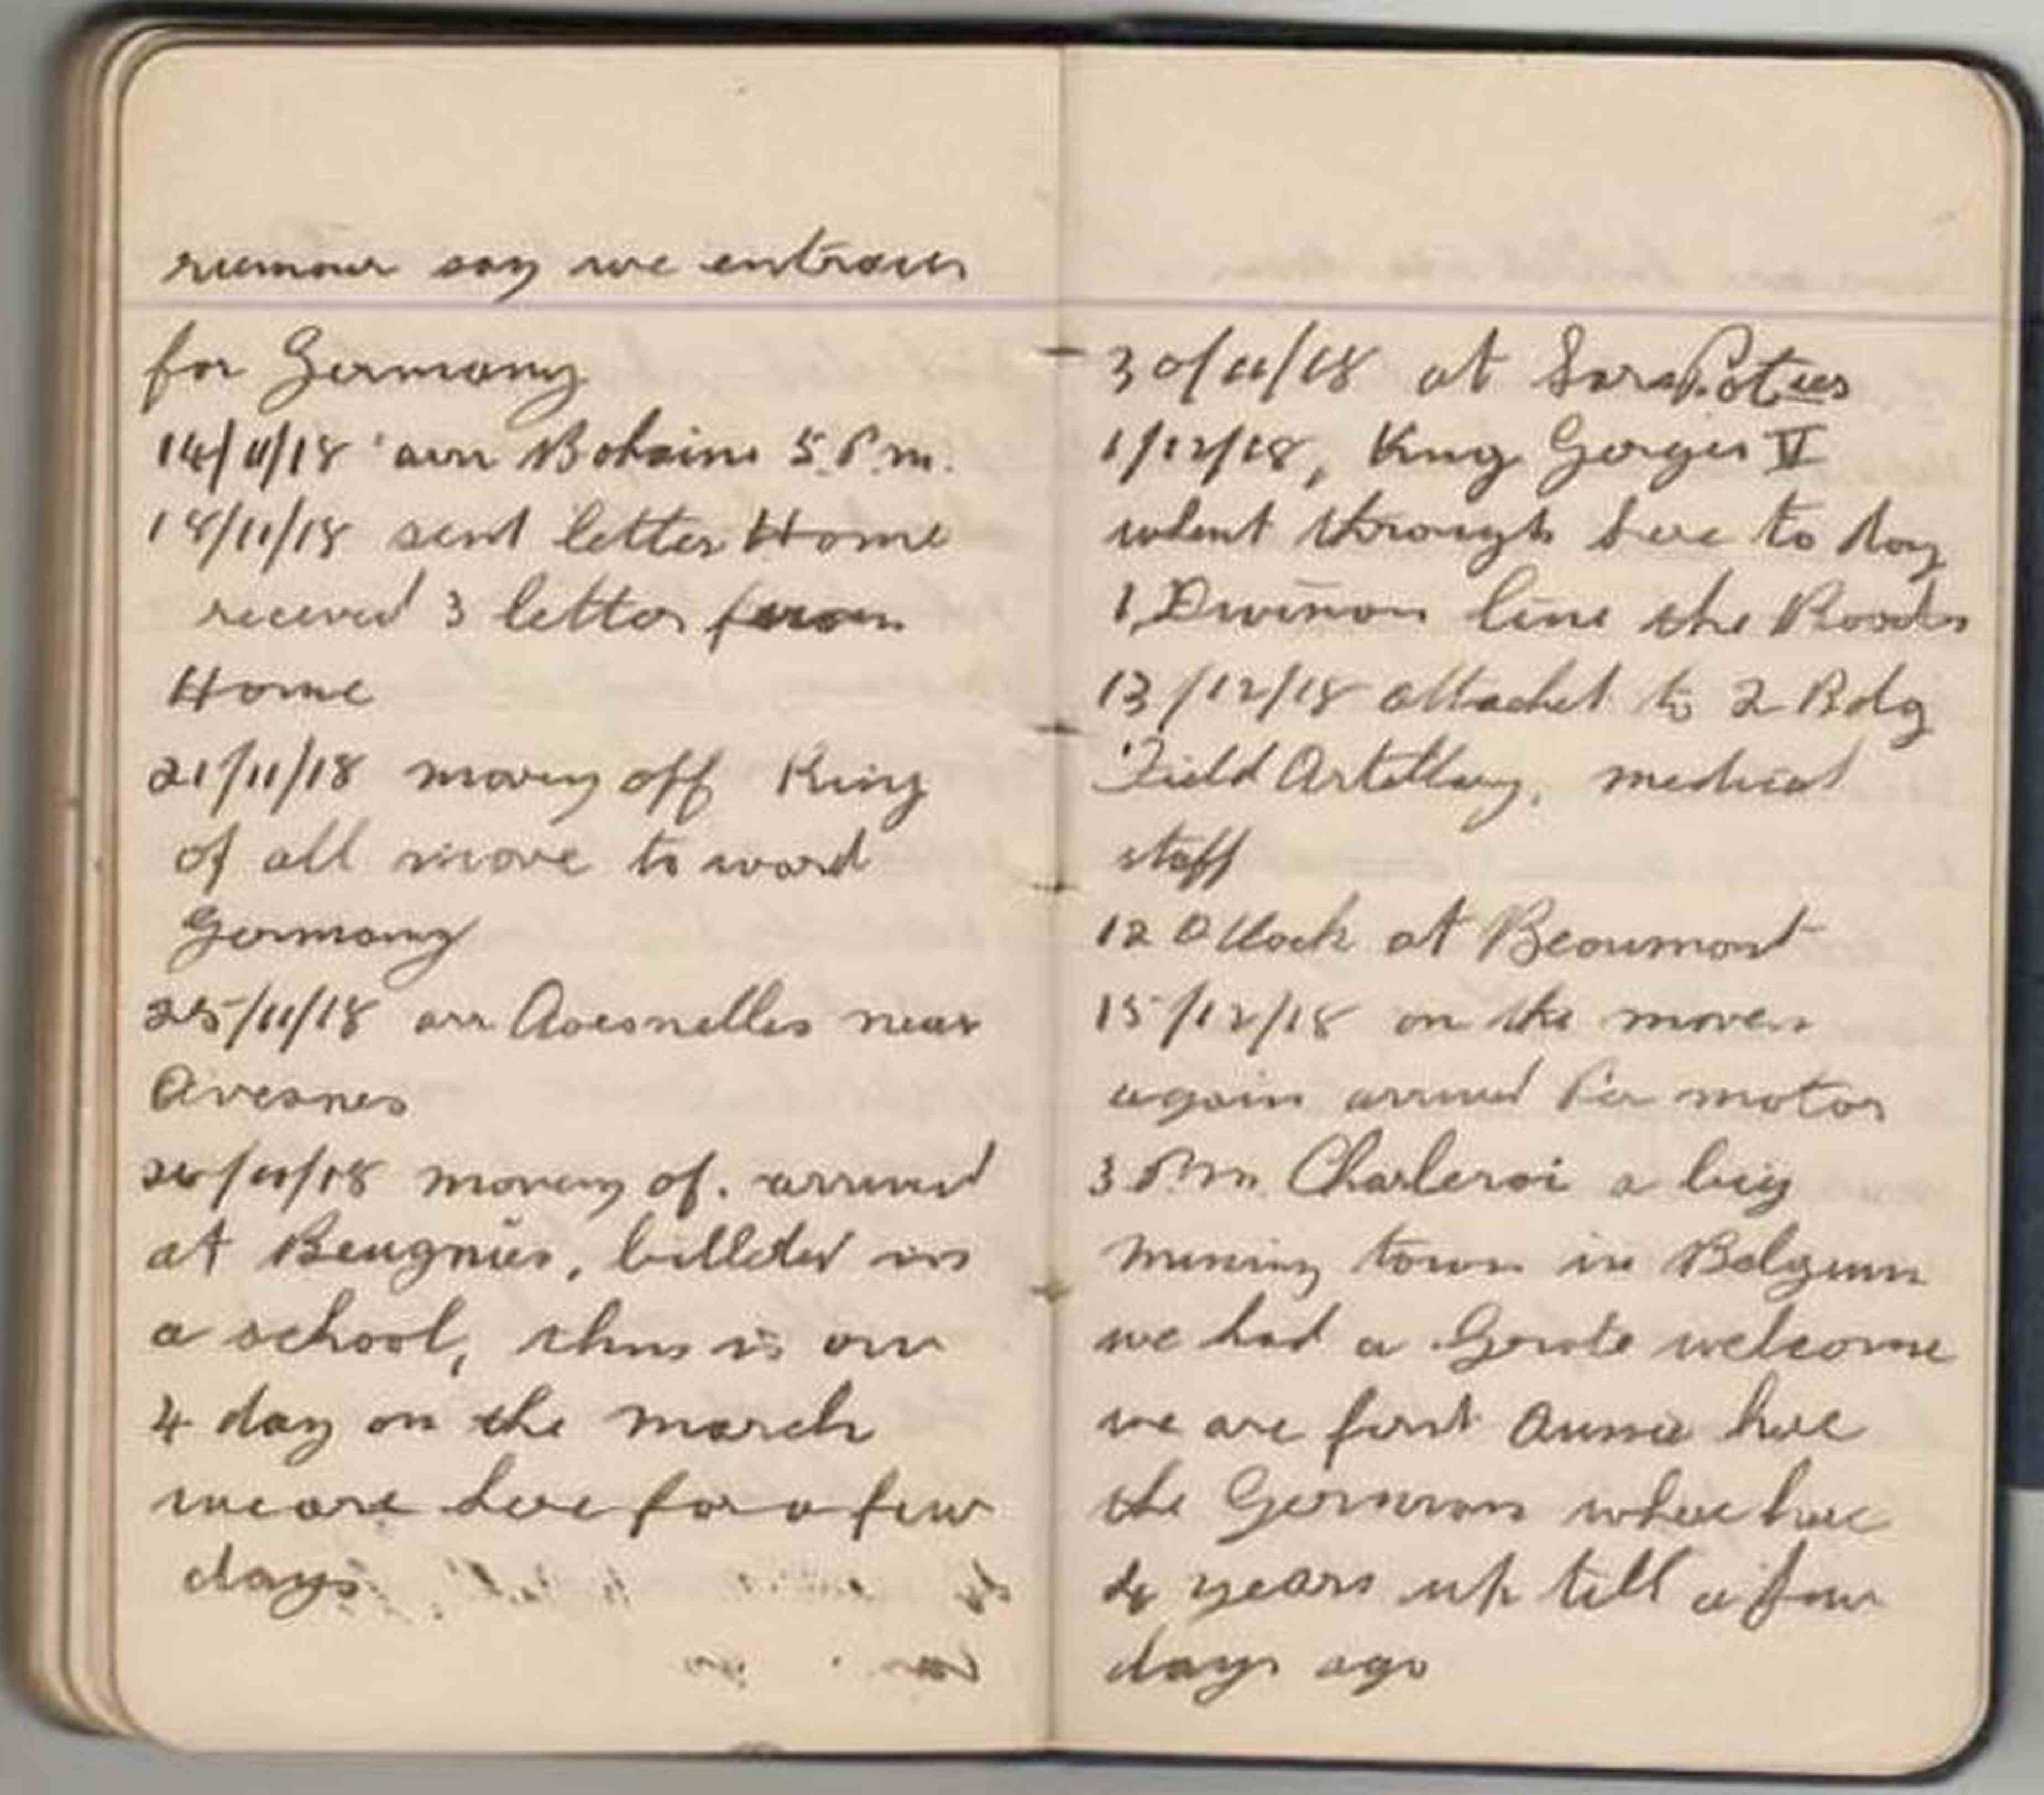 rumour say we entrain
for Germany
14/11/18 arr Bohain 5 P.m.
18/11/18 sent letter Home
received 3 letter from
Home
21/11/18 moving off King
of all move to ward
Germany
25/11/18 arr Avesnelles near
Avesnes
26/11/18 moving of. arrived
at Beugnies, billeted in
a school, this is our
4 day on the march
we are here for a few
days
30/11/18 at Sars Poteries
1/12/18, King Gorges V
whent through here to day
1 Division line the Roads
13/12/18 attachet to 2 Bdg
Field Artillary, medical
staff
12 Oclock at Beaumont
15/12/18 on the move
again arrived Per motor
3 P.m. Charleroi a big
mining town in Belgium
we had a welcome
we are first Aussie here
the Germans where here
4 years up till a few
days ago